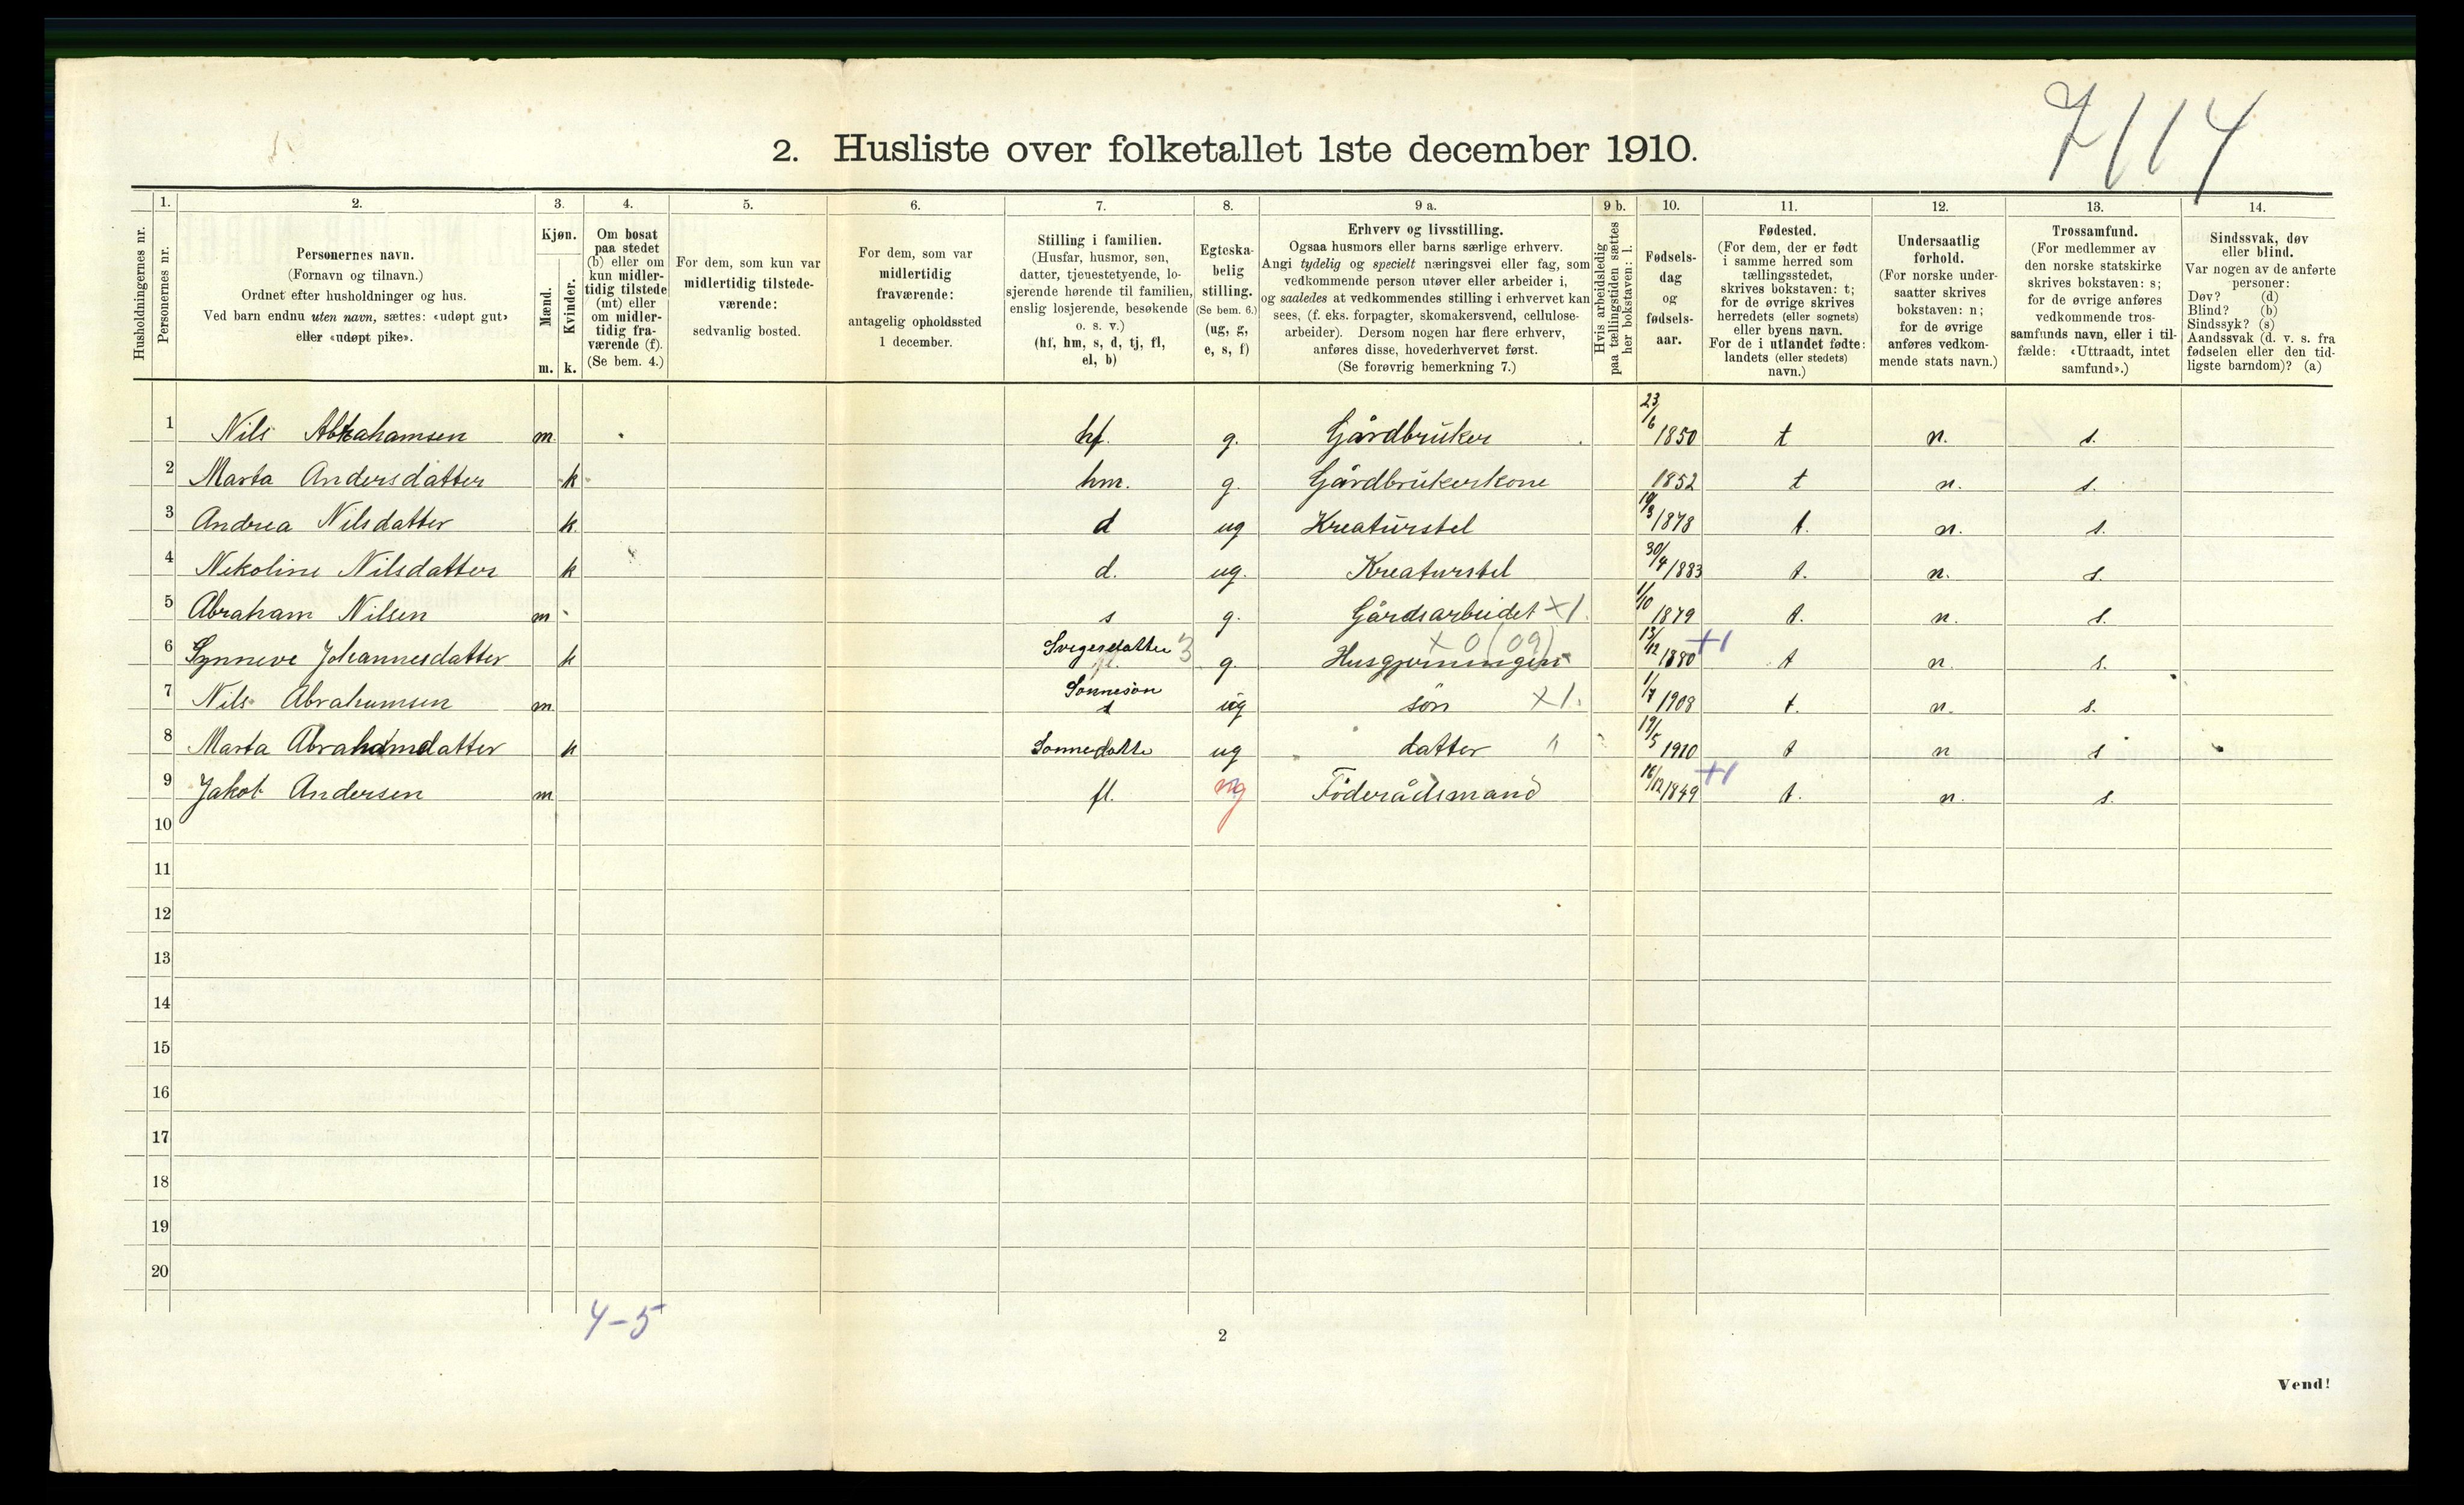 7114
2. Husliste over folketallet 1ste december 1910.
Husholdningernes nr.
1. Personernes nr.
2. Personernes navn.
(Fornavn og tilnavn.)
Ordnet efter husholdninger og hus.
Ved barn endnu uten navn, sættes: «udøpt gut»
eller «udøpt pike».
3. Kjøn.
Mænd. Kvinder.
m. k.
4. Om bosat
paa stedet
(b) eller om
kun midler-
tidig tilstede
(mt) eller
om midler-
tidig fra-
værende (f).
(Se bem. 4.)
5. For dem, som kun var
midlertidig tilstede-
værende:
sedvanlig bosted.
6. For dem, som var
midlertidig
fraværende:
antagelig opholdssted
1 december.
7. Stilling i familien.
(Husfar, husmor, søn,
datter, tjenestetyende, lo-
sjerende hørende til familien,
enslig losjerende, besøkende
o. s. v.)
(hf, hm, s, d, tj, fl,
el, b)
8. Egteska-
belig
stilling.
(Se bem. 6.)
(ug, g,
e, s, f)
9 a. Erhverv og livsstilling.
Ogsaa husmors eller barns særlige erhverv.
Angi tydelig og specielt næringsvei eller fag, som
vedkommende person utøver eller arbeider i,
og saaledes at vedkommendes stilling i erhvervet kan
sees, (f. eks. forpagter, skomakersvend, cellulose-
arbeider). Dersom nogen har flere erhverv,
anføres disse, hovederhvervet først.
(Se forøvrig bemerkning 7.)
9 b. Hvis arbeidsledig
paa tællingstiden sættes
her bokstaven: l.
10. Fødsels-
dag
og
fødsels-
aar.
11. Fødested.
(For dem, der er født
i samme herred som
tællingsstedet,
skrives bokstaven: t;
for de øvrige skrives
herredets (eller sognets)
eller byens navn.
For de i utlandet fødte:
landets (eller stedets)
navn.)
12. Undersaatlig
forhold.
(For norske under-
saatter skrives
bokstaven: n;
for de øvrige
anføres vedkom-
mende stats navn.)
13. Trossamfund.
(For medlemmer av
den norske statskirke
skrives bokstaven: s;
for de øvrige anføres
vedkommende tros-
samfunds navn, eller i til-
fælde: «Uttraadt, intet
samfund».)
14. Sindssvak, døv
eller blind.
Var nogen av de anførte
personer:
Døv? (d)
Blind? (b)
Sindssyk? (s)
Aandssvak (d. v. s. fra
fødselen eller den tid-
ligste barndom)? (a)
1 Nils Abrahamsen m. hf. g. Gårdbruker 23/6 1850 t n. s.
2 Marta Andersdatter k hm. g. Gårdbrukerkone 1852 t n. s.
3 Andrea Nilsdatter k. d ug Kreaturstel 19/3 1878 t. n. s.
4 Nekoline Nilsdatter k d. ug. Kreaturstel 30/4 1883 t. n. s.
5 Abraham Nilsen m s g. Gårdsarbeidet X1. 1/10 1879 t. n. s.
6 Synneve Johannesdatter k Svigerdatter 3 g. Husgjerningen X 0 (09) 13/12 1880 +1 t n. s.
7 Nils Abrahamsen m Sønnesøn s ug søn X1. 1/7 1908 t. n. s.
8 Marta Abrahamdatter k Sønnedatte ug datter 19/5 1910 t n s
9 Jakob Andersen m fl. ug Föderådsmand 16/12 1849 +1 t. n. s.
10
11
12
13
14
15
16
17
18
19
20
4-5
2
Vend!